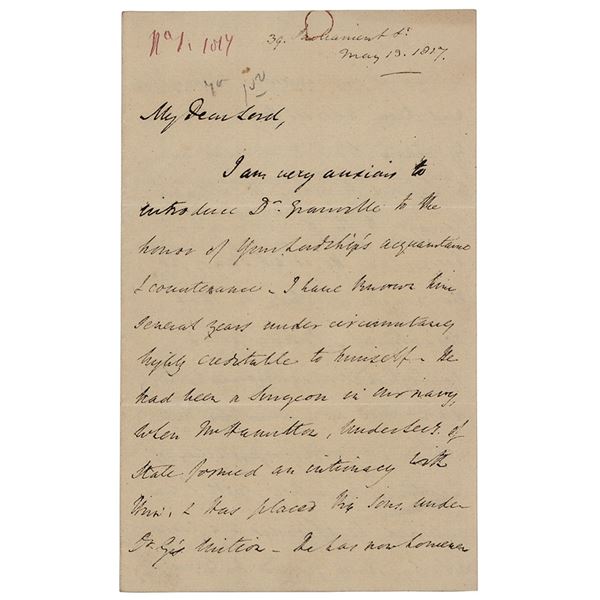 No 1. 1817
39. Parliament St.
May 13. 1817.
My Dear Lord,
I am very anxious to
introduce Dr. Granville to the
honor of Your Lordship's acquaintance
& countenance - I have known him
several years under circumstances
highly creditable to himself - He
had been a Surgeon in our navy,
when Mr Hamilton, Undersecr. of
State formed an intimacy with
him, & has placed his sons under
Dr G's tuition - He has now however